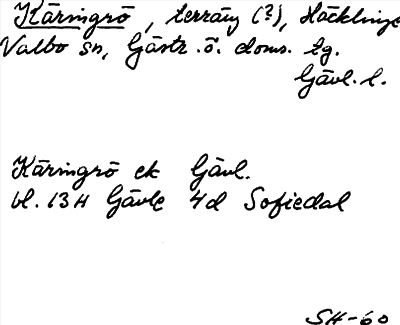 Käringrö, terräng (?), Häcklinge
Valbo sn, Gästr. ö. doms. tg.
Gävl. l.
Käringrö ek Gävl.
bl. 13H Gävle 4d Sofiedal
SH-60